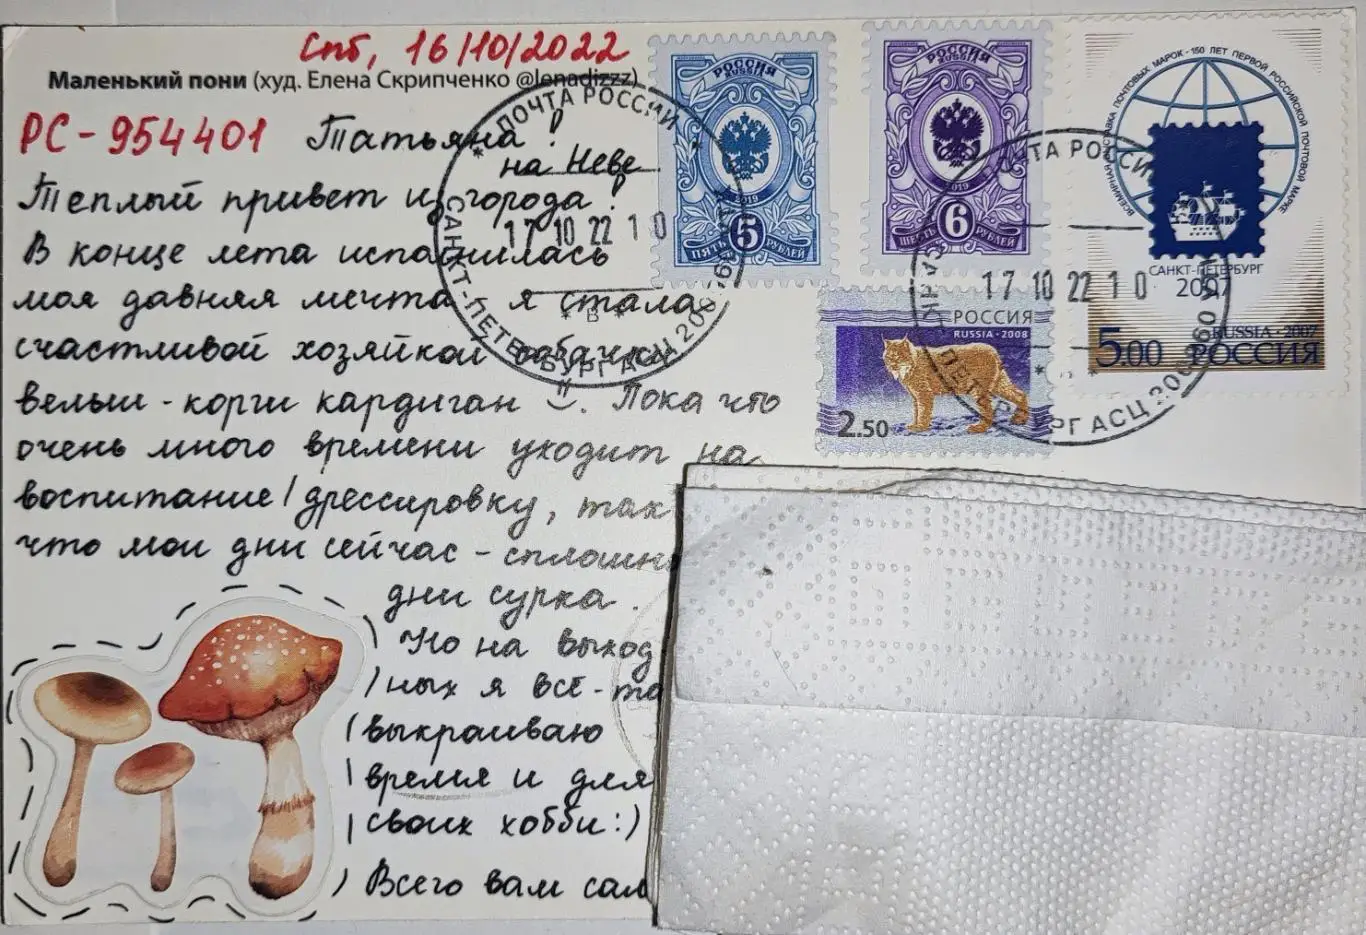 Спб, 16/10/2022
Маленький пони (худ. Елена Скрипченко @lenadizzz)
РС-954401 Татьяна!
на Неве
Теплый привет и города!
В конце лета исполнилась
моя давняя мечта я стала
счастливой хозяйкой собачки
вельш-корги кардиган :). Пока что
очень много времени уходит на
воспитание/дрессировку, так
что мои дни сейчас - сплошн
дни сурка.
Но на выход-
ных я все-та
выкраиваю
время и для
своих хобби:)
Всего вам сам
РОССИЯ
RUSSIA
2019
5
ПЯТЬ РУБЛЕЙ
РОССИЯ
RUSSIA
2019
6
ШЕСТЬ РУБЛЕЙ
ВСЕМИРНАЯ ВЫСТАВКА ПОЧТОВЫХ МАРОК · 150 ЛЕТ ПЕРВОЙ РОССИЙСКОЙ ПОЧТОВОЙ МАРКЕ
САНКТ-ПЕТЕРБУРГ
2007
RUSSIA · 2007
5.00 РОССИЯ
РОССИЯ
RUSSIA · 2008
2.50
* ПОЧТА РОССИИ *
САНКТ-ПЕТЕРБУРГ АСЦ
17 10 22 1 0
* В *
ПОЧТА РОССИИ
САНКТ-ПЕТЕРБУРГ АСЦ
17 10 22 1 0